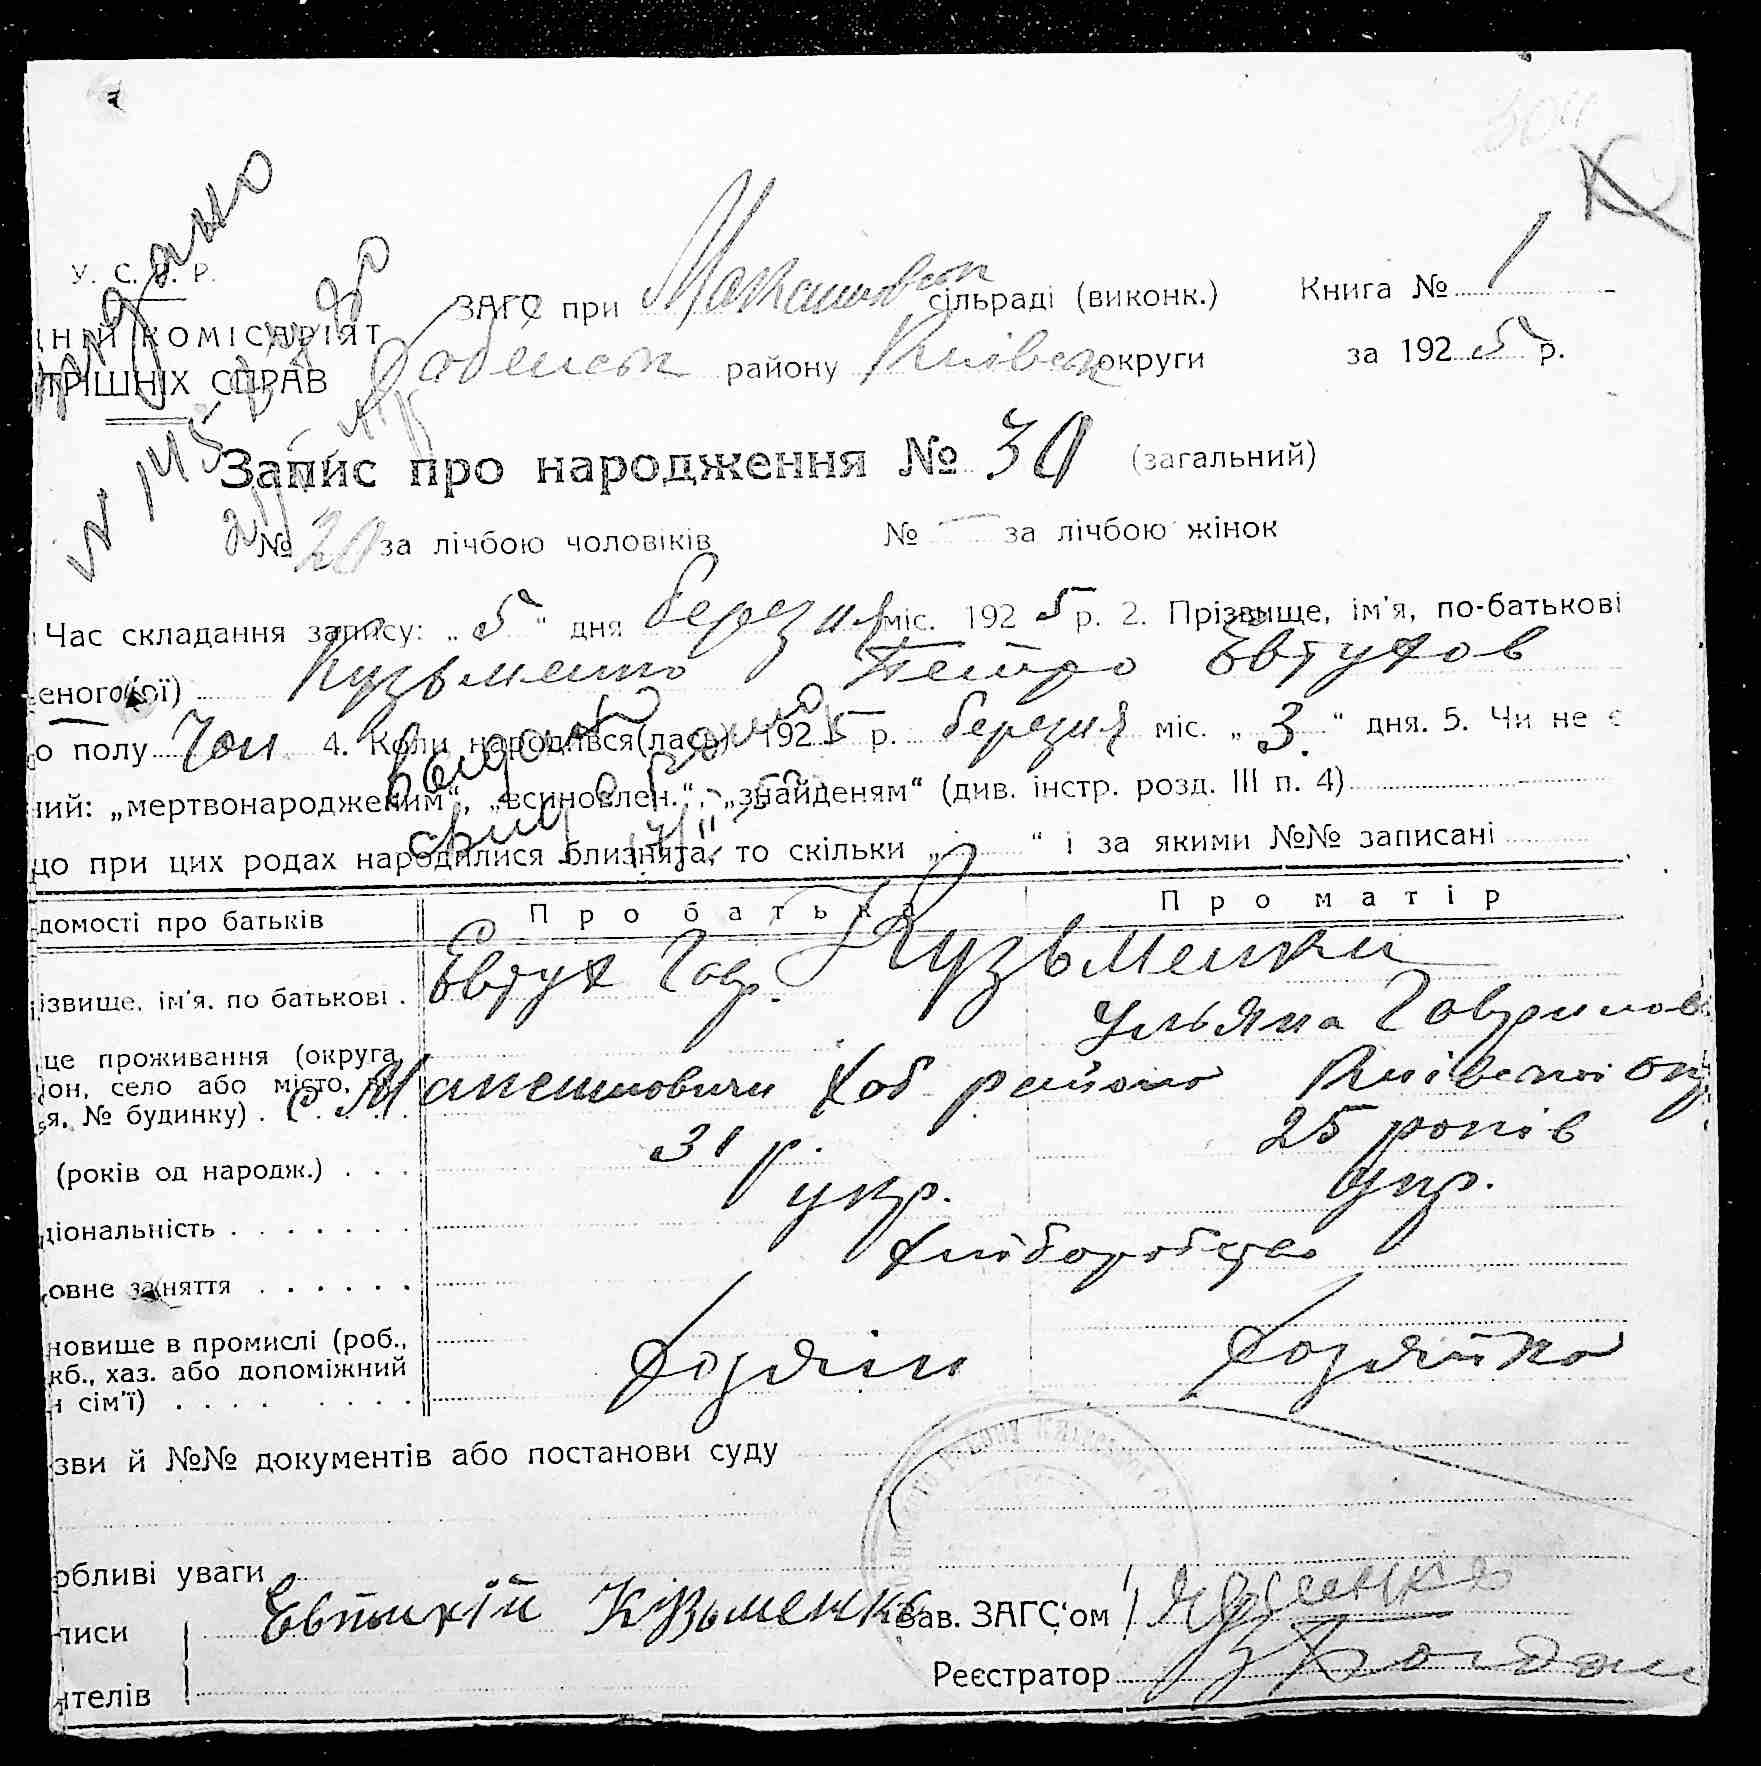 У. С. Р. Р.
ДНІЙ КОМІСАРІЯТ
ТРІШНІХ СПРАВ
ЗАГС при сільраді (виконк.) Книга № 1
району Київськ округи за 1925 р.
Запис про народження № 30 (загальний)
№ 20 за лічбою чоловіків № — за лічбою жінок
Час складання запису: „5“ дня березня міс. 1925 р. 2. Прізвище, ім'я, по-батькові
еного(ої) Кузьменко Петро Євтухов
о полу Чол 4. Коли народився(лась) 1925 р. березня міс. „3“ дня. 5. Чи не є
ний: „мертвонародженим“, „всиновлен.“, „знайденям“ (див. інстр. розд. III п. 4)
що при цих родах народилися близнята, то скільки „ “ і за якими №№ записані
домості про батьків Про батька Про матір
ізвище, ім'я, по батькові . Євтух Гавр. Кузьменки
Ульяна Гаврилов
це проживання (округа,
он, село або місто, ву
я, № будинку) . с. Макишовичи Хоб району Київської окр
(років од народж.) . . . 31 р. 25 років
ціональність . . . . . . . укр. укр.
овне заняття . . . . . . хліборобство
новище в промислі (роб.,
кб., хаз. або допоміжний
н сім'ї) . . . . . . . . Хозяїн Хозяйка
зви й №№ документів або постанови суду
обливі уваги
писи Євтихій Кузьменко Зав. ЗАГС'ом
ителів Реєстратор